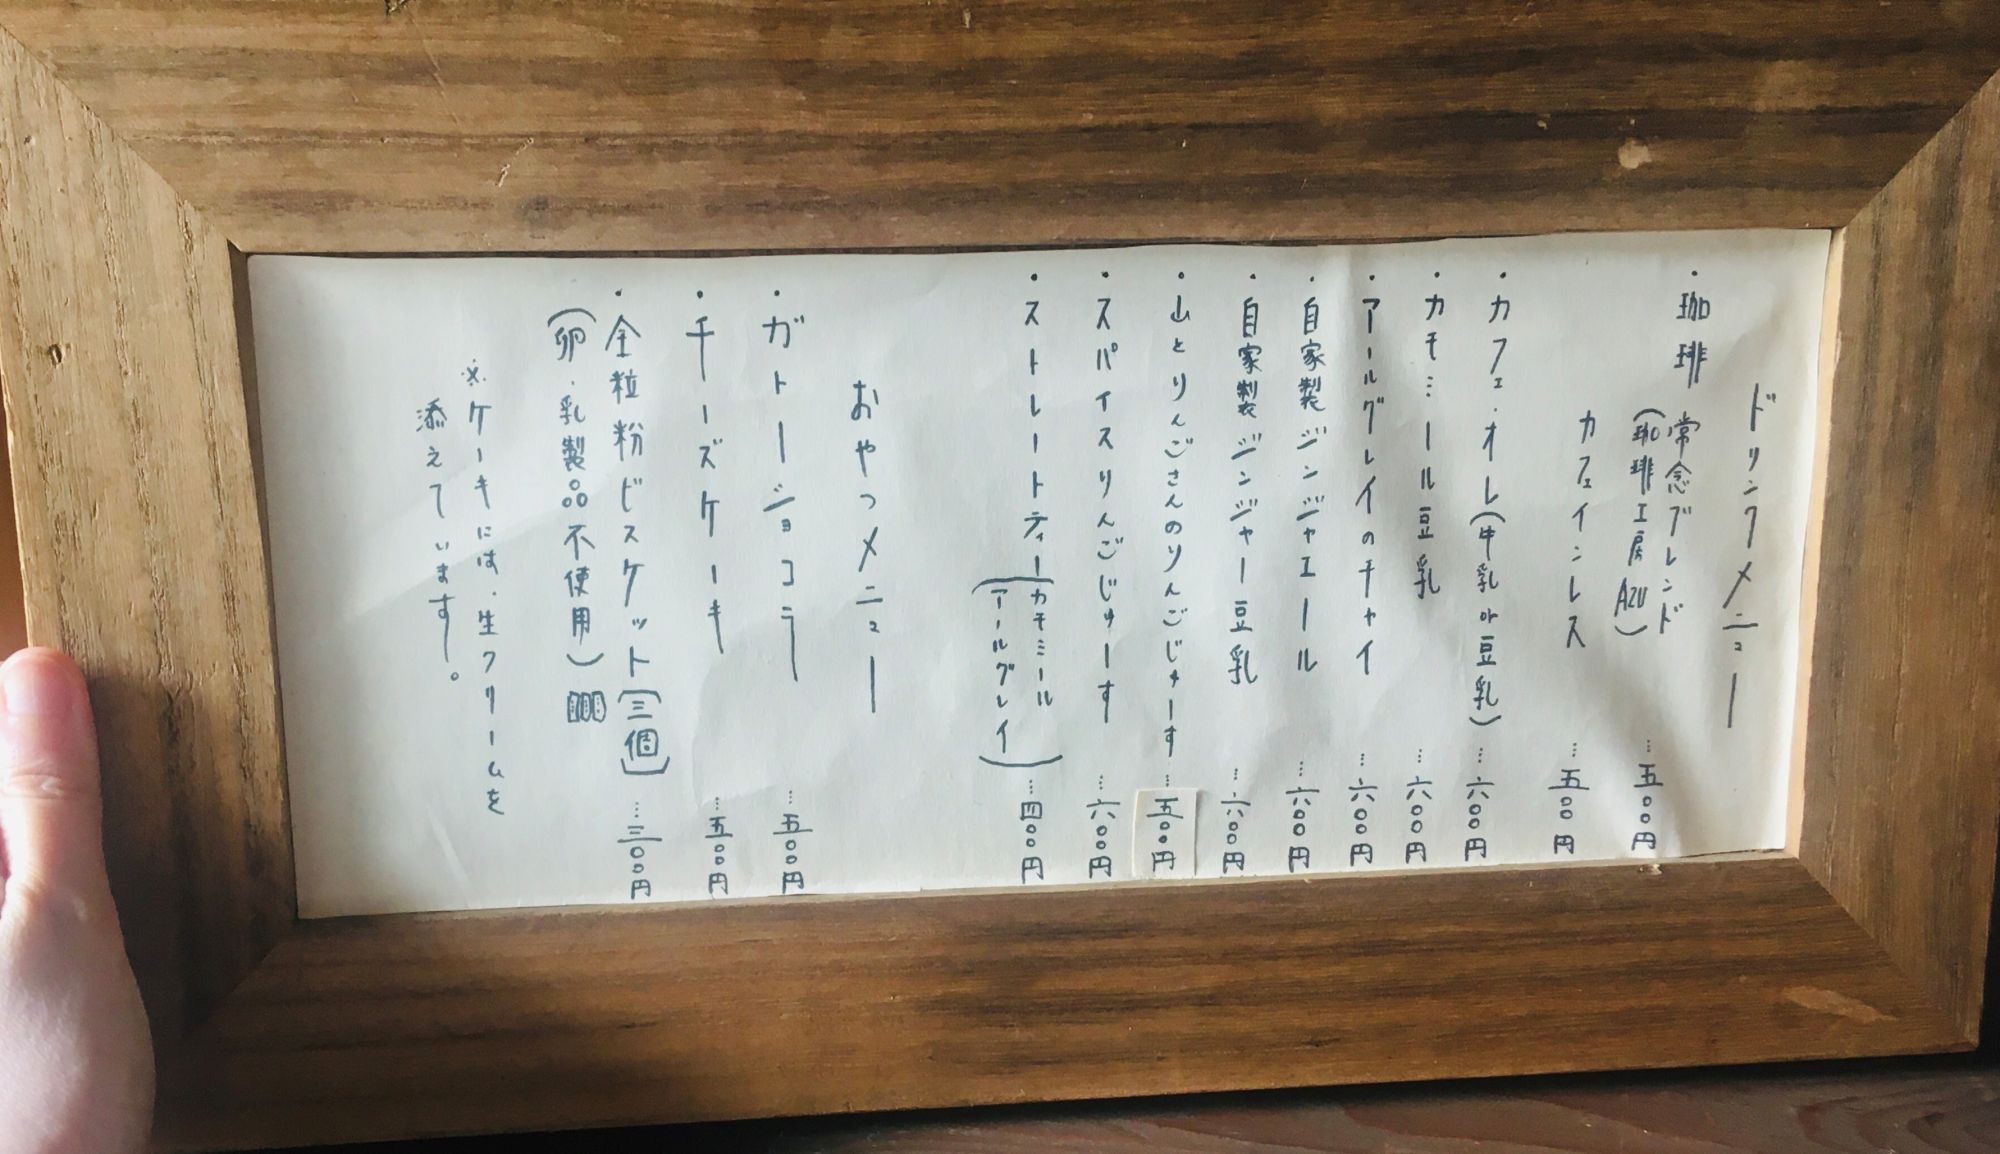 ドリンクメニュー
・珈琲 常念ブレンド
(珈琲工房AZU) … 五〇〇円
カフェインレス … 五〇〇円
・カフェ・オレ(牛乳or豆乳) … 六〇〇円
・カモミール豆乳 … 六〇〇円
・アールグレイのチャイ … 六〇〇円
・自家製ジンジャエール … 六〇〇円
・自家製ジンジャー豆乳 … 六〇〇円
・山とりんごさんのりんごじゅーす … 五〇〇円
・スパイスりんごじゅーす … 六〇〇円
・ストレートティー(カモミール
アールグレイ) … 四〇〇円
おやつメニュー
・ガトーショコラ … 五〇〇円
・チーズケーキ … 五〇〇円
・全粒粉ビスケット(三個) … 三〇〇円
(卵・乳製品不使用)
※ケーキには、生クリームを
添えています。